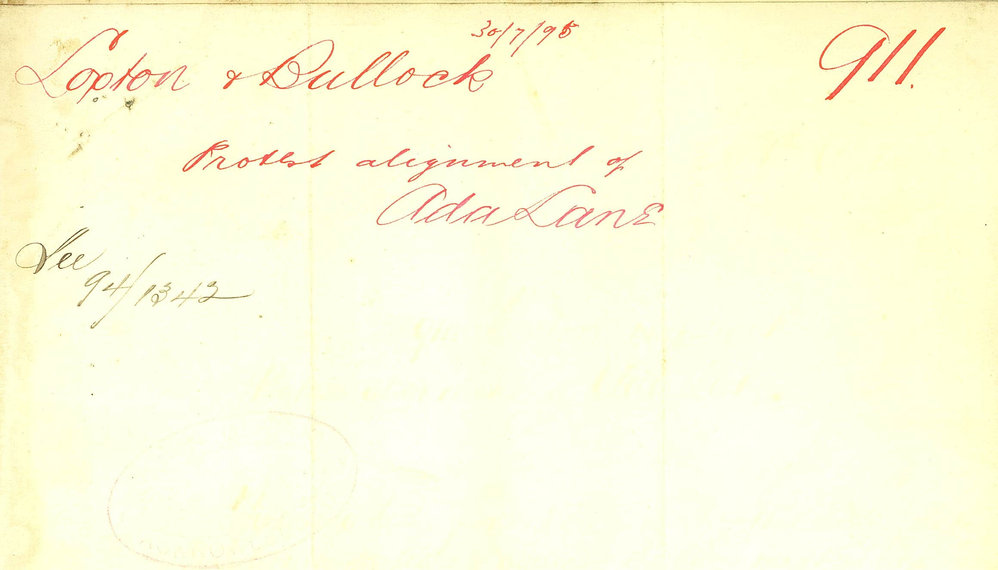 30/7/95
Loxton & Bullock
911.
Protest alignment of
Ada Lane
See
94/1342